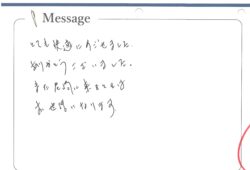 Message
とても快適にすごせました。
ありがとうございました。
また 来
お世話になります